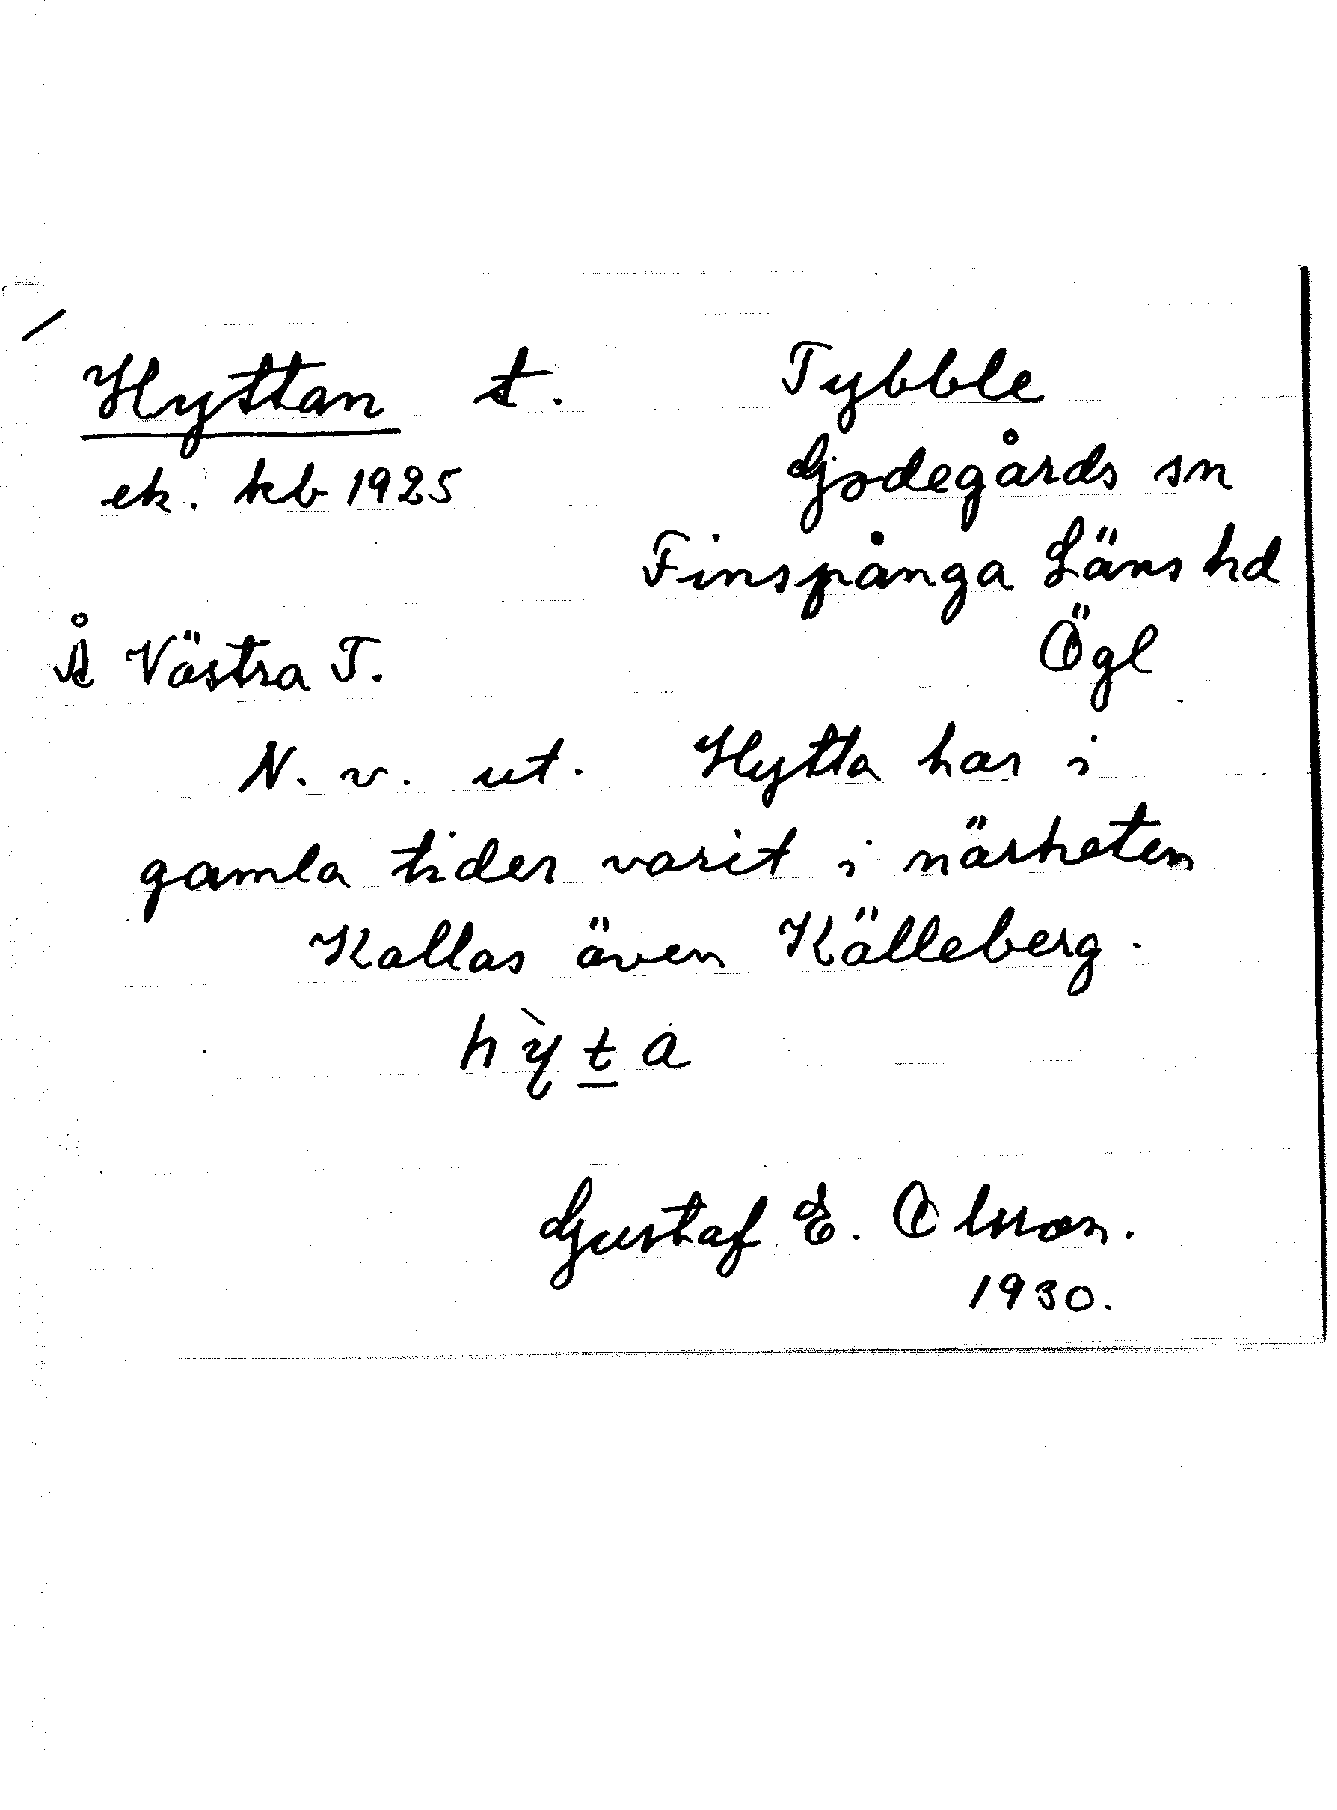 Hyttan t. Tybble
ek. kb 1925 Godegårds sn
Finspånga Läns hd
Å Västra T. Ögl
N. v. ut. Hytta har i
gamla tider varit i närheten
Kallas även Källeberg.
hỳṯa
Gustaf E. Olsson.
1930.